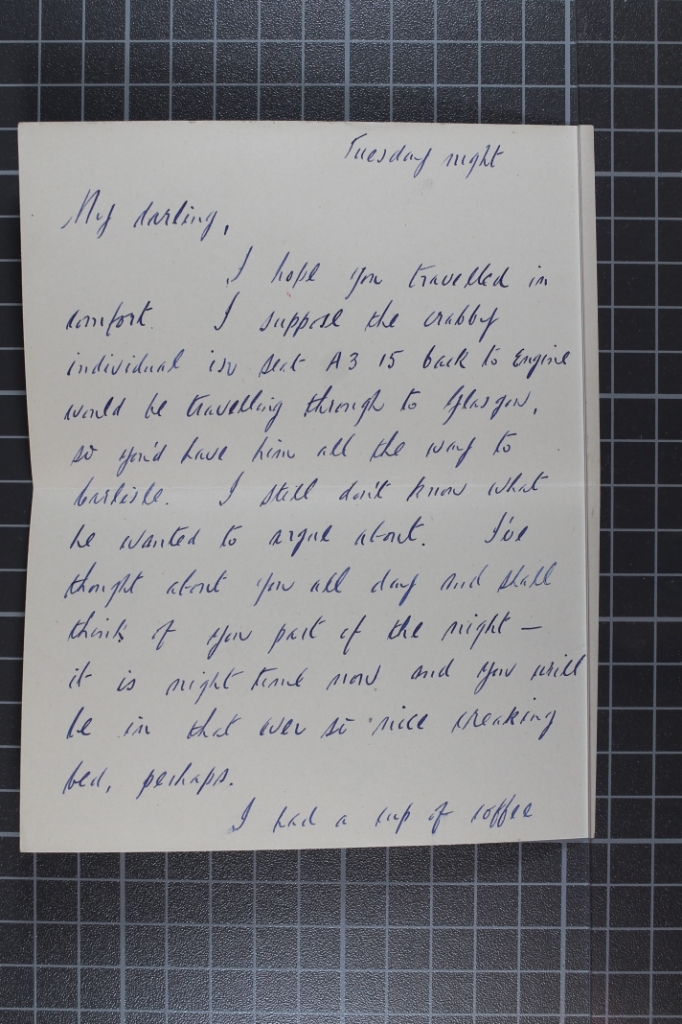 Tuesday night
My darling,
I hope you travelled in
comfort. I suppose the crabby
individual in seat A3 15 back to Engine
would be travelling through to Glasgow,
so you'd have him all the way to
Carlisle. I still don't know what
he wanted to argue about. I've
thought about you all day and shall
think of you part of the night —
it is night time now and you will
be in that ever so nice creaking
bed, perhaps.
I had a cup of coffee